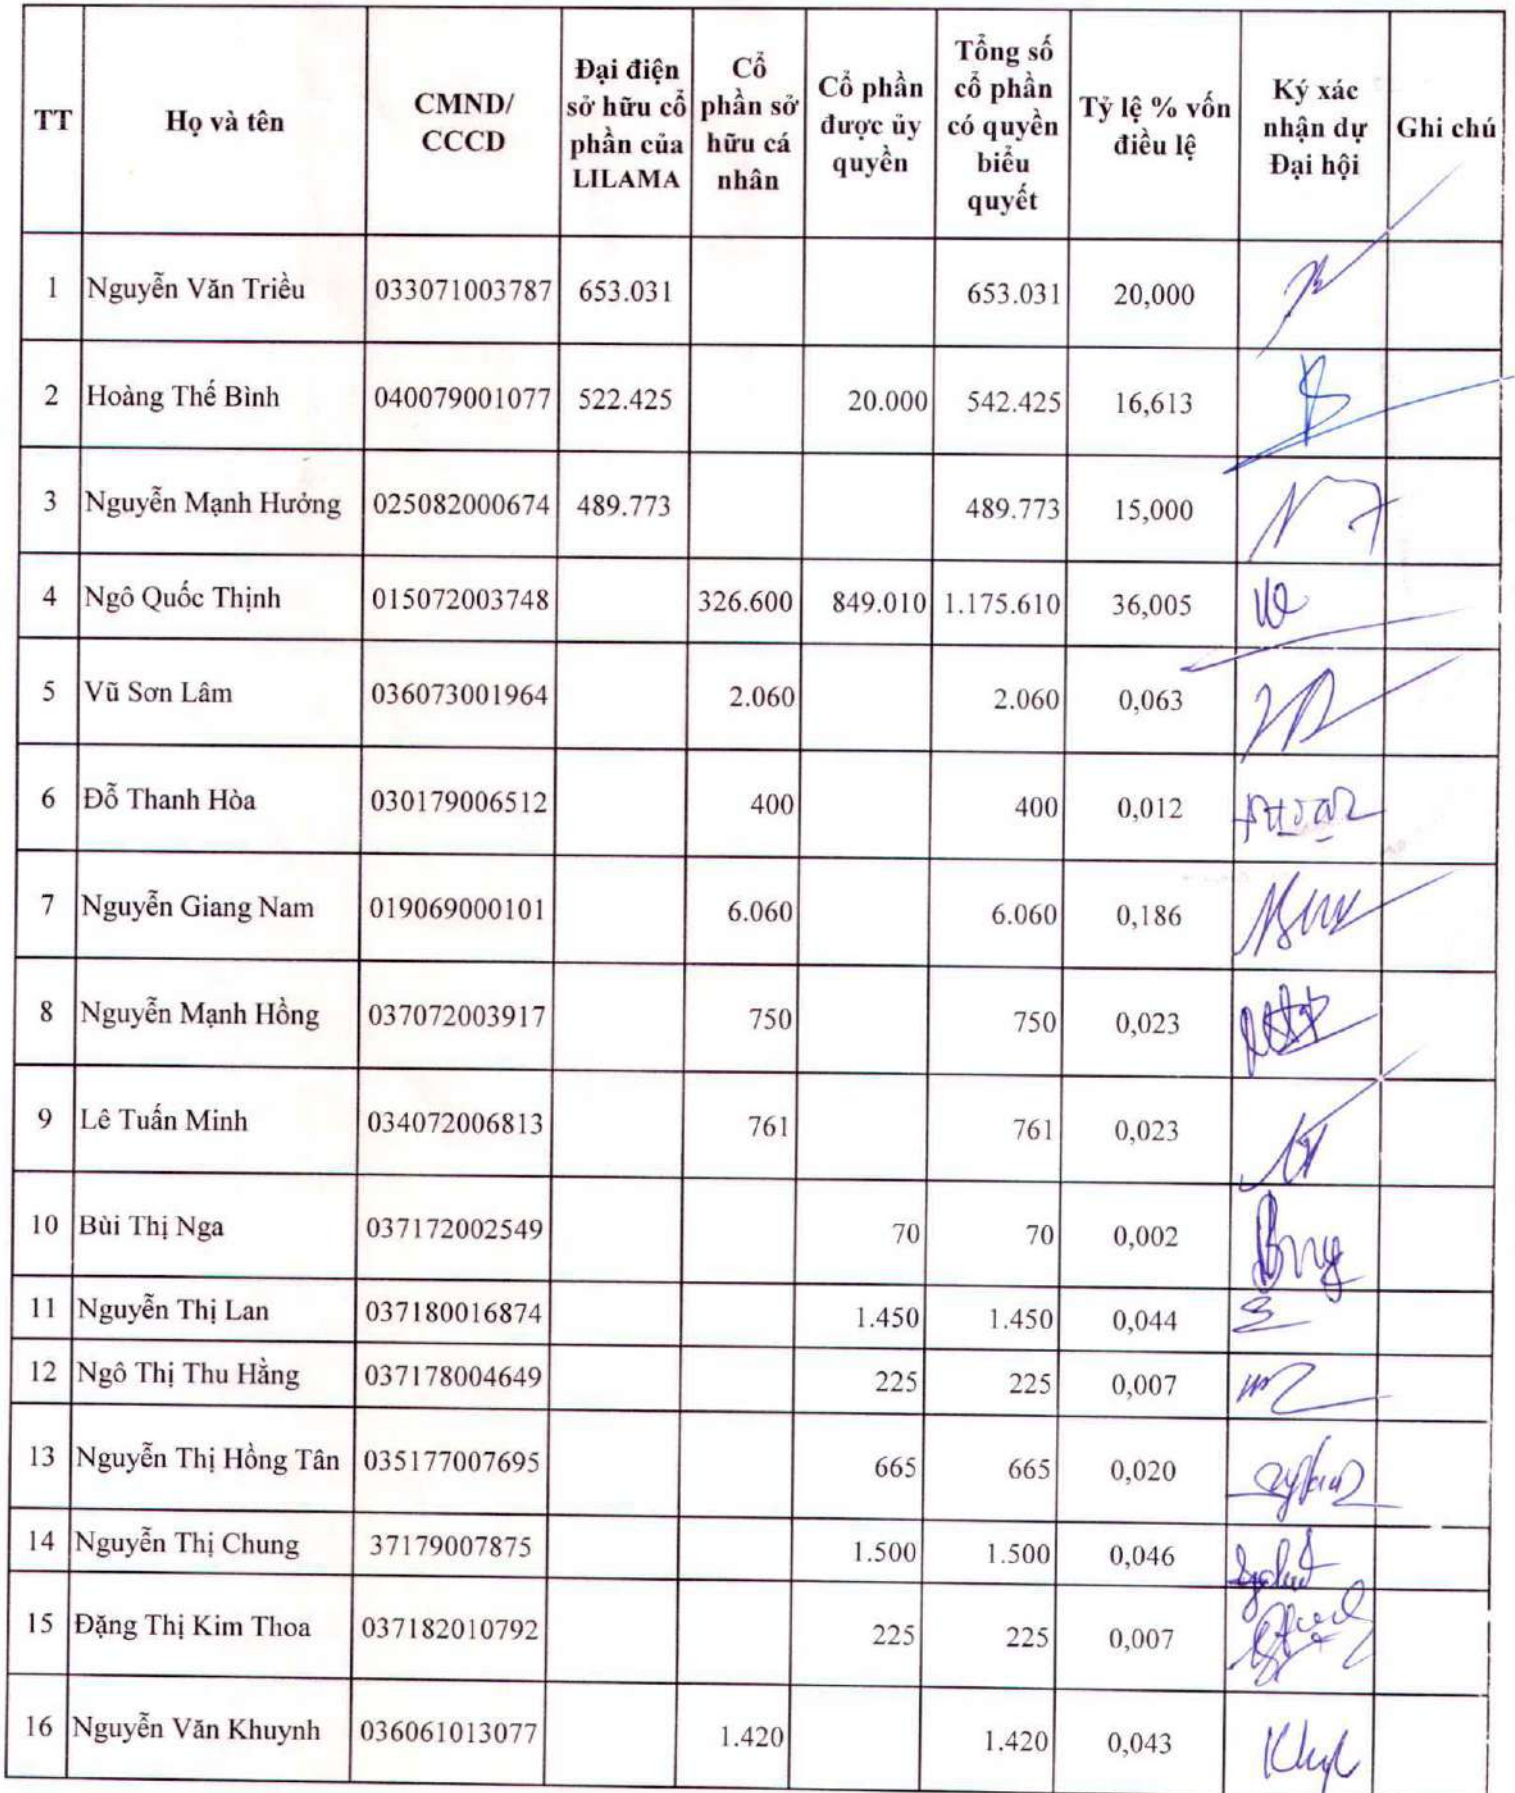 TT Họ và tên CMND/ CCCD Đại điện sở hữu cổ phần của LILAMA Cổ phần sở hữu cá nhân Cổ phần được ủy quyền Tổng số cổ phần có quyền biểu quyết Tỷ lệ % vốn điều lệ Ký xác nhận dự Đại hội Ghi chú
1 Nguyễn Văn Triều 033071003787 653.031 653.031 20,000
2 Hoàng Thế Bình 040079001077 522.425 20.000 542.425 16,613
3 Nguyễn Mạnh Hưởng 025082000674 489.773 489.773 15,000
4 Ngô Quốc Thịnh 015072003748 326.600 849.010 1.175.610 36,005
5 Vũ Sơn Lâm 036073001964 2.060 2.060 0,063
6 Đỗ Thanh Hòa 030179006512 400 400 0,012
7 Nguyễn Giang Nam 019069000101 6.060 6.060 0,186
8 Nguyễn Mạnh Hồng 037072003917 750 750 0,023
9 Lê Tuấn Minh 034072006813 761 761 0,023
10 Bùi Thị Nga 037172002549 70 70 0,002
11 Nguyễn Thị Lan 037180016874 1.450 1.450 0,044
12 Ngô Thị Thu Hằng 037178004649 225 225 0,007
13 Nguyễn Thị Hồng Tân 035177007695 665 665 0,020
14 Nguyễn Thị Chung 37179007875 1.500 1.500 0,046
15 Đặng Thị Kim Thoa 037182010792 225 225 0,007
16 Nguyễn Văn Khuynh 036061013077 1.420 1.420 0,043